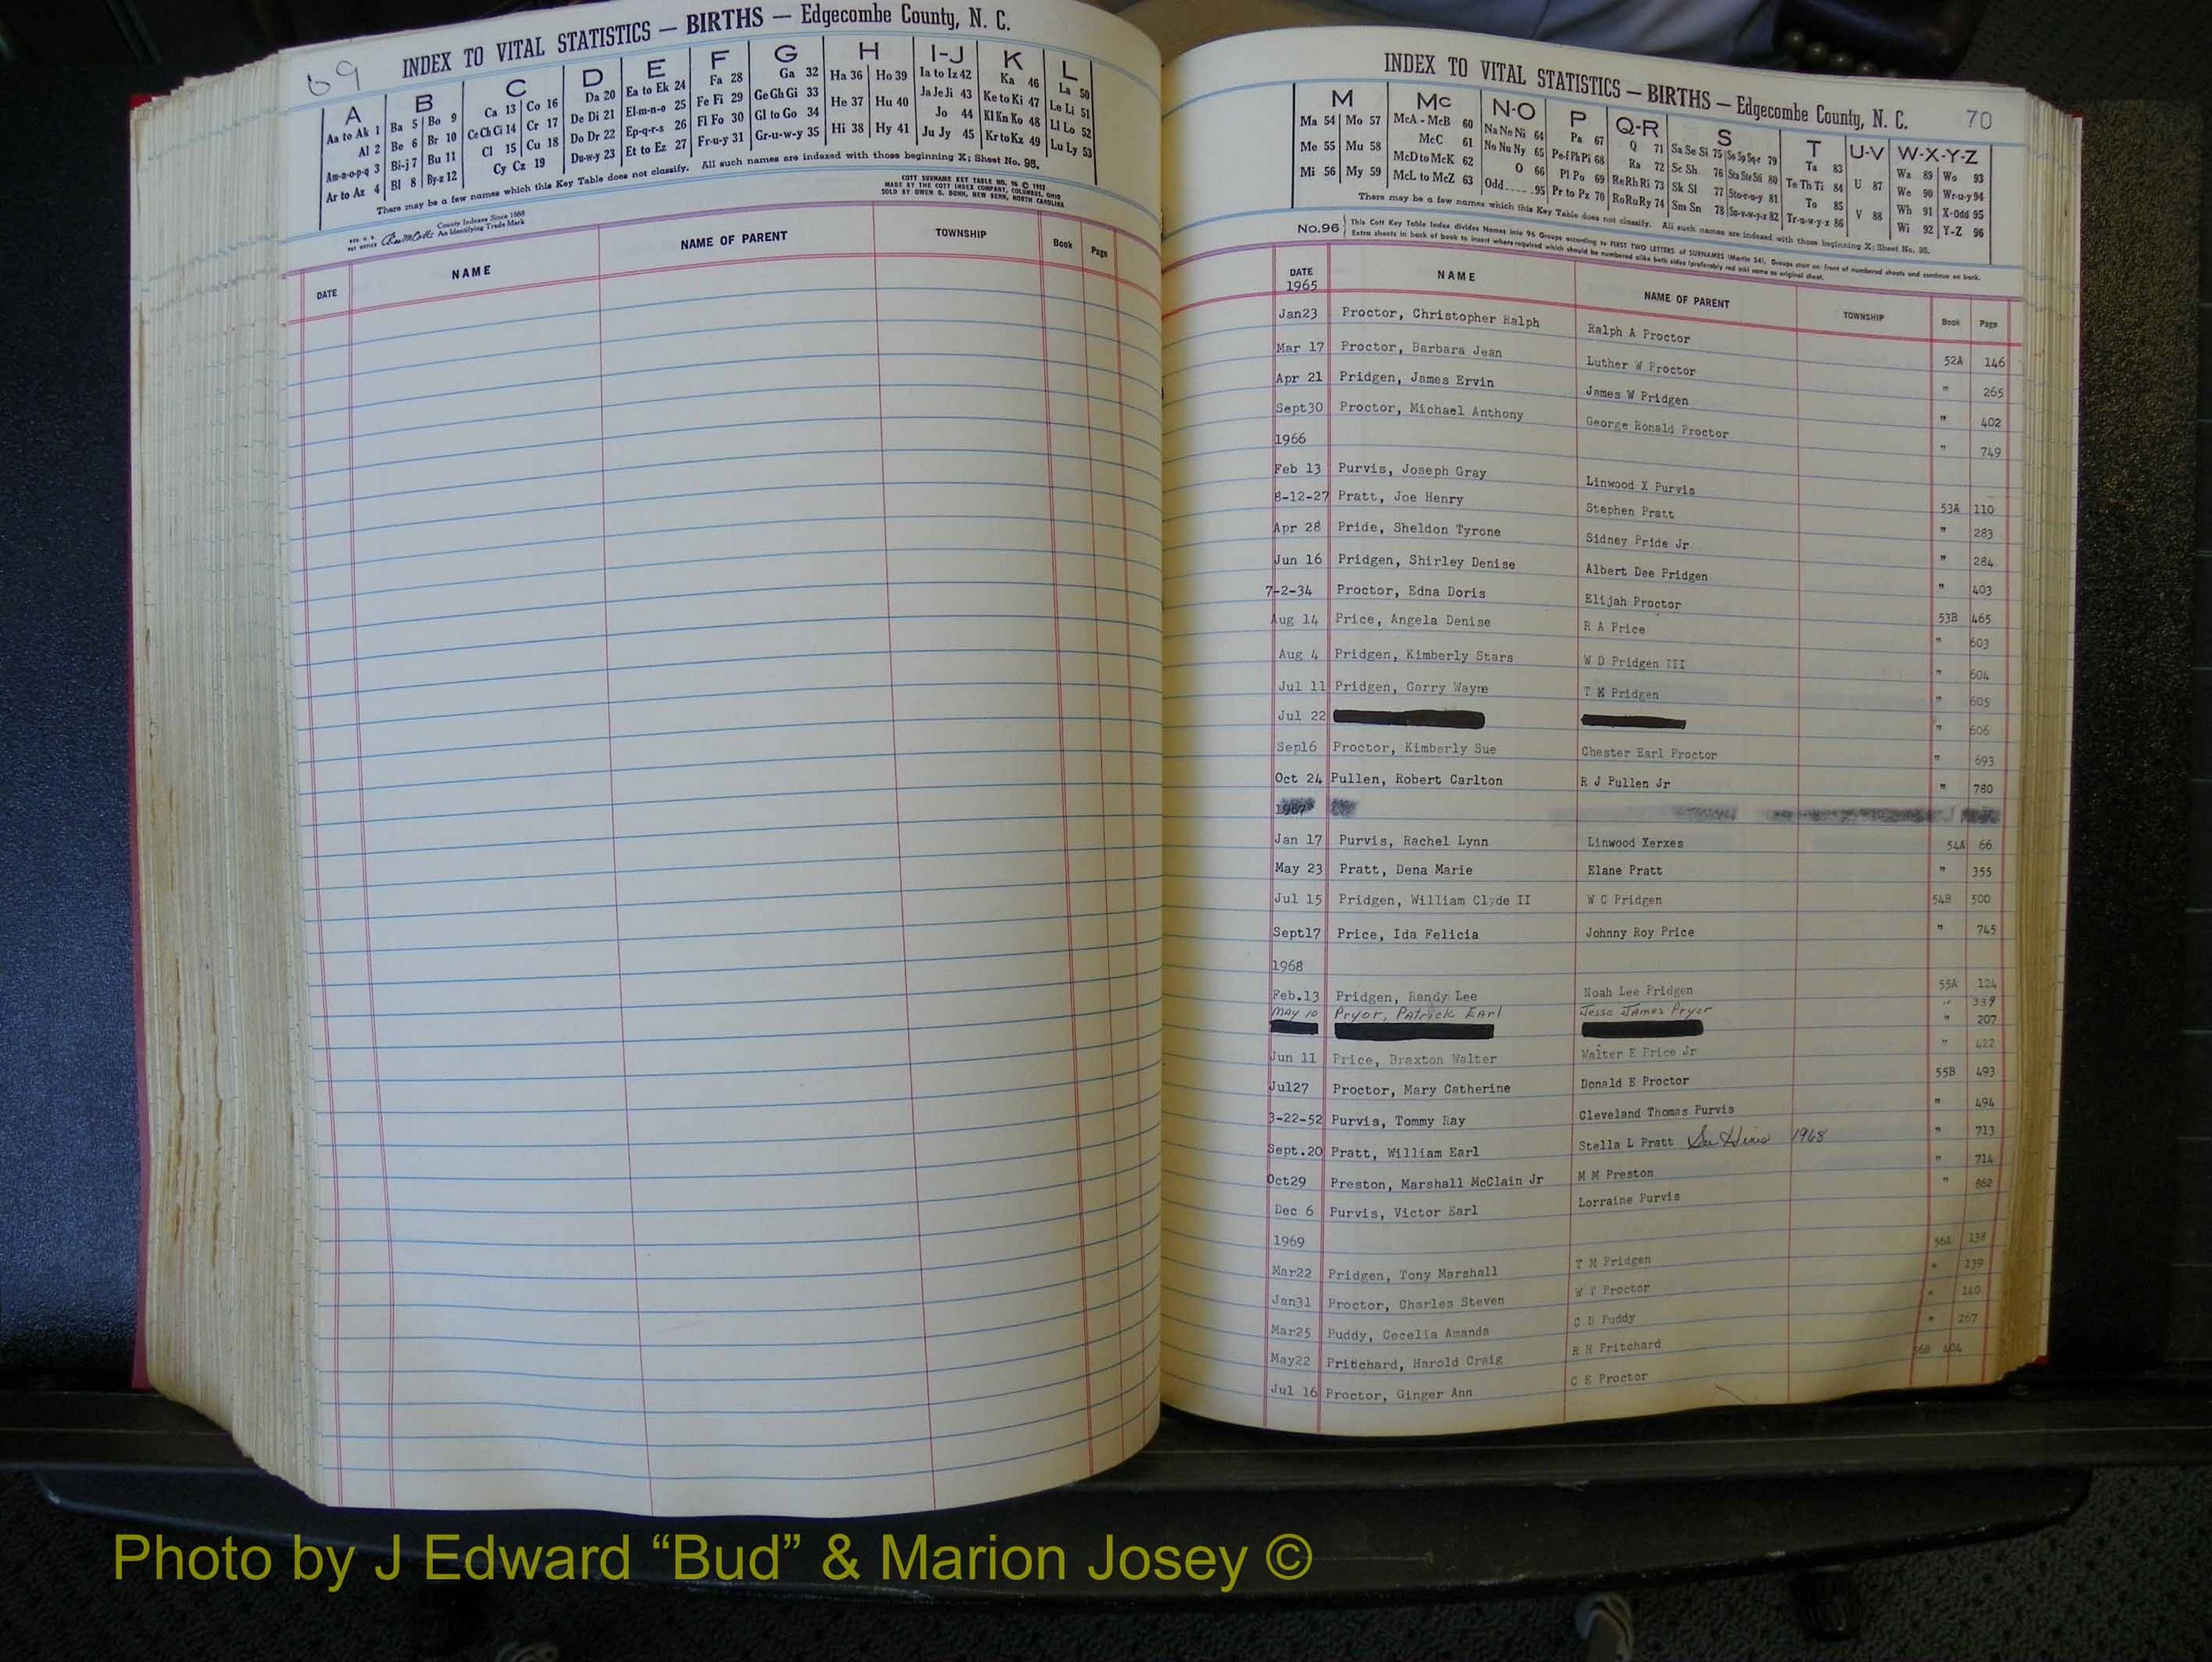 69
INDEX TO VITAL STATISTICS — BIRTHS — Edgecombe County, N. C.
A B C D E F G H I-J K L
Aa to Ak 1 Ba 5 Bo 9 Ca 13 Co 16 Da 20 Ea to Ek 24 Fa 28 Ga 32 Ha 36 Ho 39 Ia to Iz 42 Ka 46 La 50
Al 2 Be 6 Br 10 Ce Ch Ci 14 Cr 17 De Di 21 El-m-n-o 25 Fe Fi 29 Ge Gh Gi 33 He 37 Hu 40 Ja Je Ji 43 Ke to Ki 47 Le Li 51
Am-n-o-p-q 3 Bi-j-7 Bu 11 Cl 15 Cu 18 Do Dr 22 Ep-q-r-s 26 Fl Fo 30 Gl to Go 34 Hi 38 Hy 41 Jo 44 Kl Kn Ko 48 Ll Lo 52
Ar to Az 4 Bl 8 By-z 12 Cy Cz 19 Du-w-y 23 Et to Ez 27 Fr-u-y 31 Gr-u-w-y 35 Ju Jy 45 Kr to Kz 49 Lu Ly 53
There may be a few names which this Key Table does not classify. All such names are indexed with those beginning X; Sheet No. 95.
County Indexes Since 1888
An Identifying Trade Mark
COTT SURNAME KEY TABLE NO. 96 © 1952
MADE BY THE COTT INDEX COMPANY, COLUMBUS, OHIO
SOLD BY OWEN G. DUNN, NEW BERN, NORTH CAROLINA
DATE NAME NAME OF PARENT TOWNSHIP Book Page
INDEX TO VITAL STATISTICS — BIRTHS — Edgecombe County, N. C. 70
M Mc N-O P Q-R S T U-V W-X-Y-Z
Ma 54 Mo 57 McA - McB 60 Na Ne Ni 64 Pa 67 Q 71 Sa Se Si 75 So Sp Sq-r 79 Ta 83 U 87 Wa 89 Wo 93
Me 55 Mu 58 McC 61 No Nu Ny 65 Pe-f Ph Pi 68 Ra 72 Sc Sh 76 Sta Ste Sti 80 Te Th Ti 84 V 88 We 90 Wr-u-y 94
Mi 56 My 59 McD to McK 62 O 66 Pl Po 69 Re Rh Ri 73 Sk Sl 77 Sto-r-u-y 81 To 85 Wh 91 X-Odd 95
McL to McZ 63 Odd 95 Pr to Pz 70 Ro Ru Ry 74 Sm Sn 78 Su-v-w-y-z 82 Tr-u-w-y-z 86 Wi 92 Y-Z 96
There may be a few names which this Key Table does not classify. All such names are indexed with those beginning X; Sheet No. 95.
No.96 This Cott Key Table Index divides Names into 96 Groups according to FIRST TWO LETTERS of SURNAMES (Martin 54). Groups start on front of numbered sheets and continue on back.
Extra sheets in back of book to insert where required which should be numbered alike both sides (preferably red ink) same as original sheet.
DATE NAME NAME OF PARENT TOWNSHIP Book Page
1965
Jan23 Proctor, Christopher Ralph Ralph A Proctor 52A 146
Mar 17 Proctor, Barbara Jean Luther W Proctor " 265
Apr 21 Pridgen, James Ervin James W Pridgen " 402
Sept30 Proctor, Michael Anthony George Ronald Proctor " 749
1966
Feb 13 Purvis, Joseph Gray Linwood X Purvis 53A 110
8-12-27 Pratt, Joe Henry Stephen Pratt " 283
Apr 28 Pride, Sheldon Tyrone Sidney Pride Jr " 284
Jun 16 Pridgen, Shirley Denise Albert Dee Pridgen " 403
7-2-34 Proctor, Edna Doris Elijah Proctor 53B 465
Aug 14 Price, Angela Denise R A Price " 603
Aug 4 Pridgen, Kimberly Stars W D Pridgen III " 604
Jul 11 Pridgen, Garry Wayne T K Pridgen " 605
Jul 22 " 606
Sep16 Proctor, Kimberly Sue Chester Earl Proctor " 693
Oct 24 Pullen, Robert Carlton R J Pullen Jr " 780
1967
Jan 17 Purvis, Rachel Lynn Linwood Xerxes 54A 66
May 23 Pratt, Dena Marie Elane Pratt " 355
Jul 15 Pridgen, William Clyde II W C Pridgen 54B 500
Sept17 Price, Ida Felicia Johnny Roy Price " 745
1968
Feb.13 Pridgen, Randy Lee Noah Lee Pridgen 55A 124
May 10 Pryor, Patrick Earl Jesse James Pryor " 339
" 207
Jun 11 Price, Braxton Walter Walter E Price Jr " 422
Jul27 Proctor, Mary Catherine Donald E Proctor 55B 493
3-22-52 Purvis, Tommy Ray Cleveland Thomas Purvis " 494
Sept.20 Pratt, William Earl Stella L Pratt See Hines 1968 " 713
Oct29 Preston, Marshall McClain Jr M M Preston " 714
Dec 6 Purvis, Victor Earl Lorraine Purvis " 862
1969
Mar22 Pridgen, Tony Marshall T M Pridgen 56A 138
Jan31 Proctor, Charles Steven W T Proctor " 139
Mar25 Puddy, Cecelia Amanda C D Puddy " 140
May22 Pritchard, Harold Craig R H Pritchard " 267
Jul 16 Proctor, Ginger Ann C E Proctor 56B 404
Photo by J Edward “Bud” & Marion Josey ©